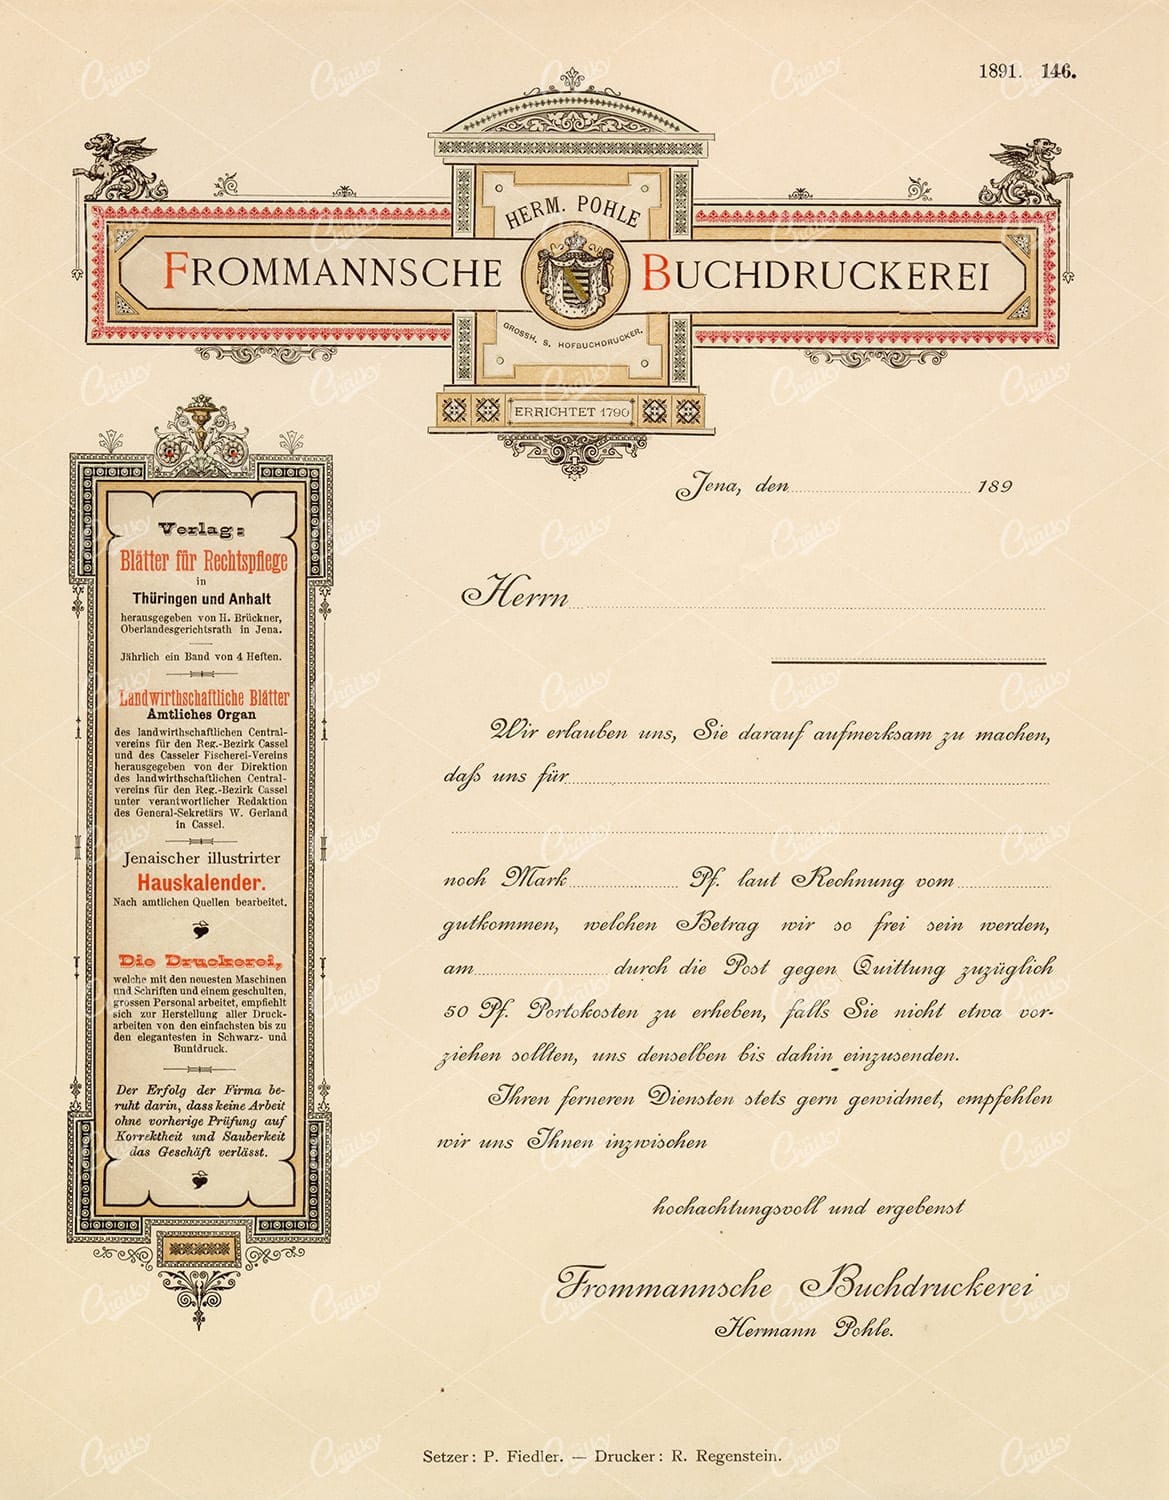 1891. 146.
HERM. POHLE
FROMMANNSCHE BUCHDRUCKEREI
GROSSH. S. HOFBUCHDRUCKER.
ERRICHTET 1790
Jena, den 189
Herrn
Wir erlauben uns, Sie darauf aufmerksam zu machen,
daß uns für
noch Mark Pf. laut Rechnung vom
gutkommen, welchen Betrag wir so frei sein werden,
am durch die Post gegen Quittung zuzüglich
50 Pf. Portokosten zu erheben, falls Sie nicht etwa vor-
ziehen sollten, uns denselben bis dahin einzusenden.
Ihren ferneren Diensten stets gern gewidmet, empfehlen
wir uns Ihnen inzwischen
hochachtungsvoll und ergebenst
Frommannsche Buchdruckerei
Hermann Pohle.
Verlag:
Blätter für Rechtspflege
in
Thüringen und Anhalt
herausgegeben von H. Brückner,
Oberlandesgerichtsrath in Jena.
Jährlich ein Band von 4 Heften.
Landwirthschaftliche Blätter
Amtliches Organ
des landwirthschaftlichen Central-
vereins für den Reg.-Bezirk Cassel
und des Casseler Fischerei-Vereins
herausgegeben von der Direktion
des landwirthschaftlichen Central-
vereins für den Reg.-Bezirk Cassel
unter verantwortlicher Redaktion
des General-Sekretärs W. Gerland
in Cassel.
Jenaischer illustrirter
Hauskalender.
Nach amtlichen Quellen bearbeitet.
Die Druckerei,
welche mit den neuesten Maschinen
und Schriften und einem geschulten,
grossen Personal arbeitet, empfiehlt
sich zur Herstellung aller Druck-
arbeiten von den einfachsten bis zu
den elegantesten in Schwarz- und
Buntdruck.
Der Erfolg der Firma be-
ruht darin, dass keine Arbeit
ohne vorherige Prüfung auf
Korrektheit und Sauberkeit
das Geschäft verlässt.
Setzer: P. Fiedler. — Drucker: R. Regenstein.